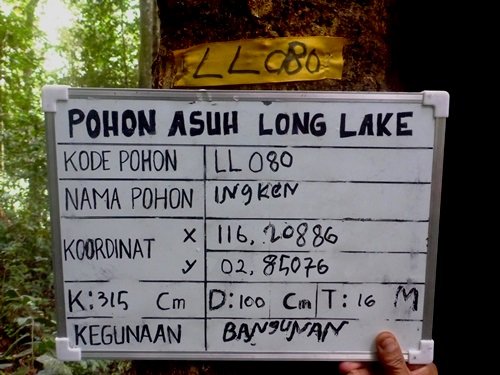 LL080
POHON ASUH LONG LAKE
KODE POHON LL 080
NAMA POHON INGKEN
KOORDINAT X 116.20886
y 02.85076
K:315 Cm D:100 Cm T:16 M
KEGUNAAN BANGUNAN